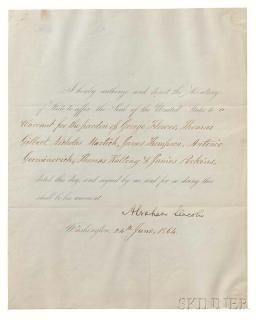 I hereby authorize and direct the Secretary
of State to affix the Seal of the United States to a
Warrant for the pardon of George Flower, Thomas
Gilbert, Nicholas James Thompson, Antonio
Thomas &
dated this day, and signed by me and for so doing this
shall be his warrant.
Abraham Lincoln
Washington, 24th June, 1864.
SKINNER